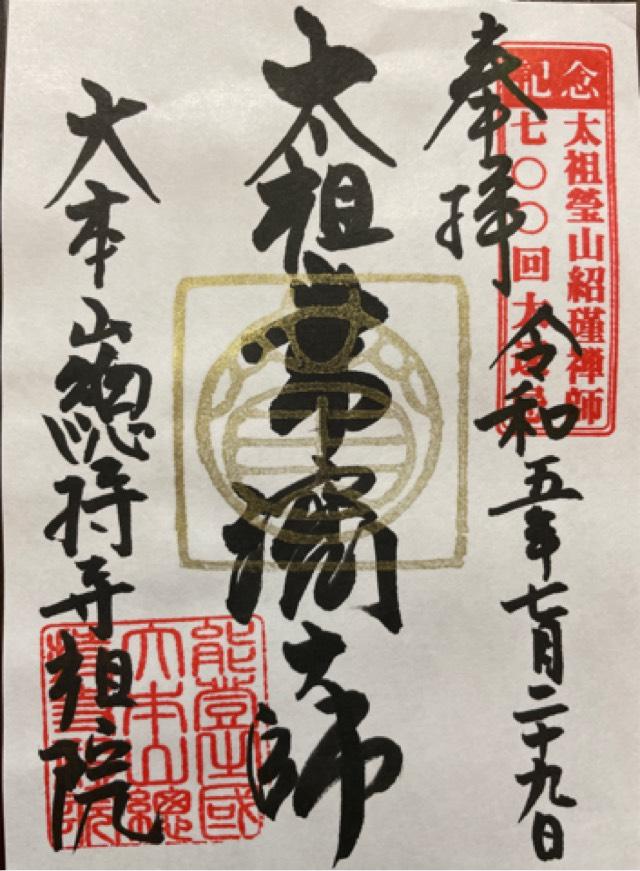 念記
太祖瑩山紹瑾禅師
七〇〇回大遠忌
奉拝
令和五年七月二十九日
太祖常済大師
大本山總持寺祖院
能登國
大本山總
院